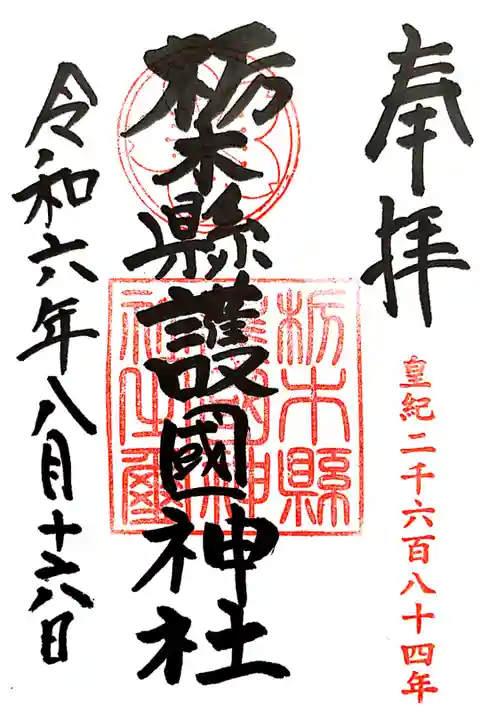 奉拝
皇紀二千六百八十四年
栃木縣護國神社
栃木縣
護國神
令和六年八月十六日